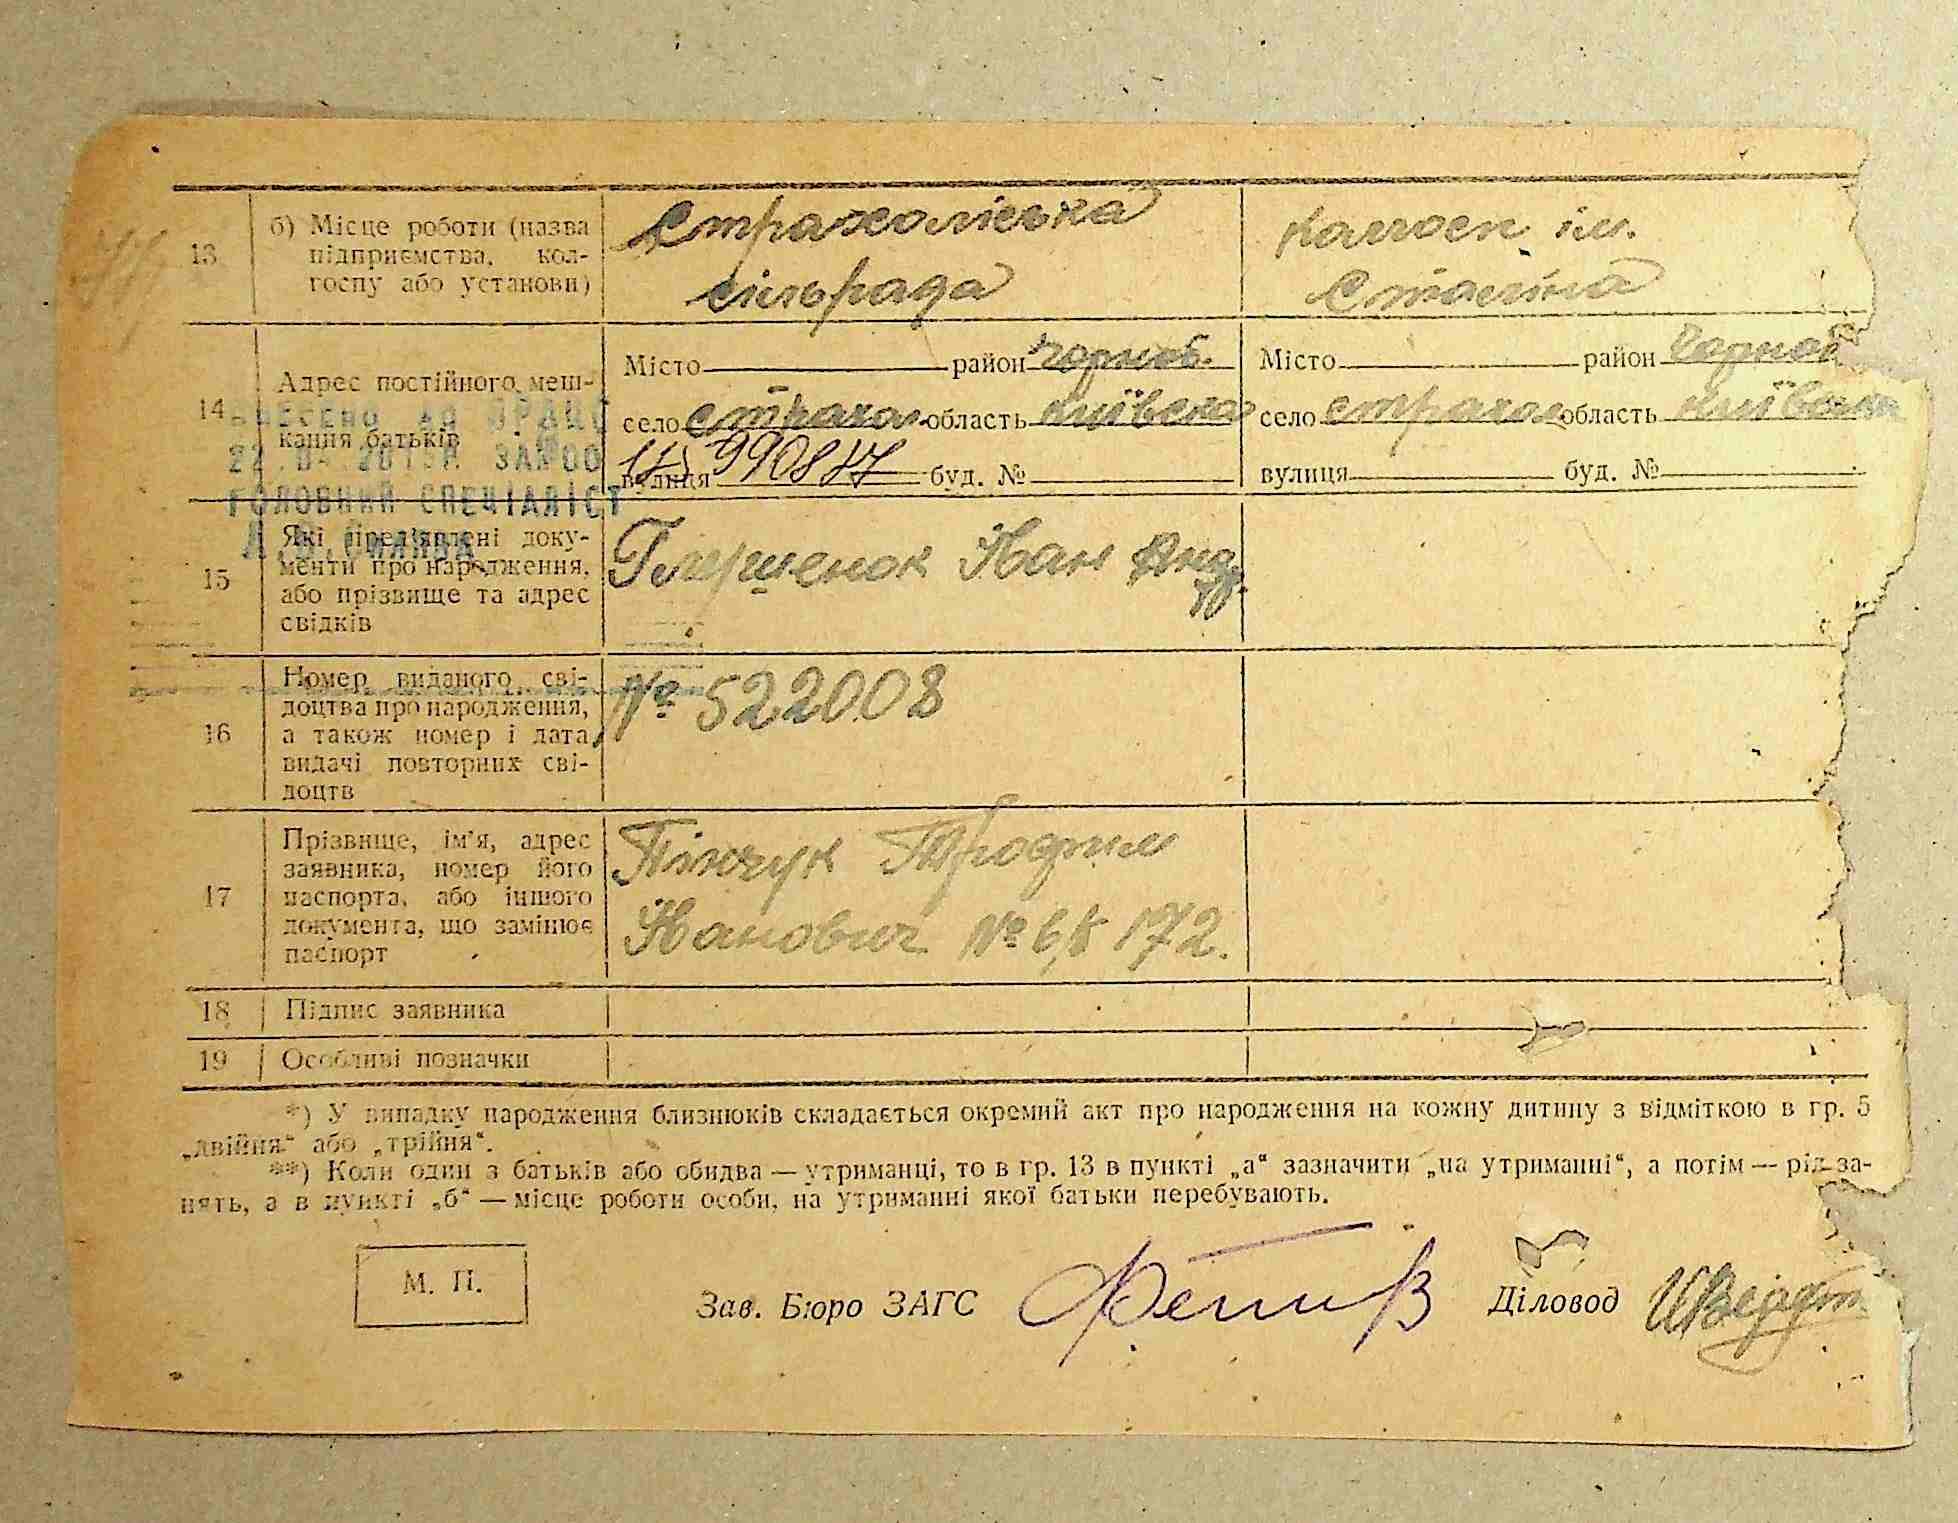 13
б) Місце роботи (назва
підприємства, кол-
госпу або установи)
Страхоліська
сільрада
Колгосп ім.
Сталіна
14
Адрес постійного меш-
кання батьків
Місто район Чорноб.
село Страхол. область Київська
вулиця буд. №
990817
Місто район Чорноб
село Страхол область Київська
вулиця буд. №
ВНЕСЕНО ДО ДРАЦС
ГОЛОВНИЙ СПЕЦІАЛІСТ
15
Які пред'явлені доку-
менти про народження,
або прізвище та адрес
свідків
Іван Андр.
16
Номер виданого сві-
доцтва про народження,
а також номер і дата
видачі повторних сві-
доцтв
№ 522008
17
Прізвище, ім'я, адрес
заявника, номер його
паспорта, або іншого
документа, що замінює
паспорт
Пінчук Трофим
Іванович № 172.
18
Підпис заявника
19
Особливі позначки
*) У випадку народження близнюків складається окремий акт про народження на кожну дитину з відміткою в гр. 5
„двійня“ або „трійня“.
**) Коли один з батьків або обидва — утриманці, то в гр. 13 в пункті „а“ зазначити „на утриманні“, а потім — рід за-
нять, а в пункті „б“ — місце роботи особи, на утриманні якої батьки перебувають.
М. П.
Зав. Бюро ЗАГС
Діловод